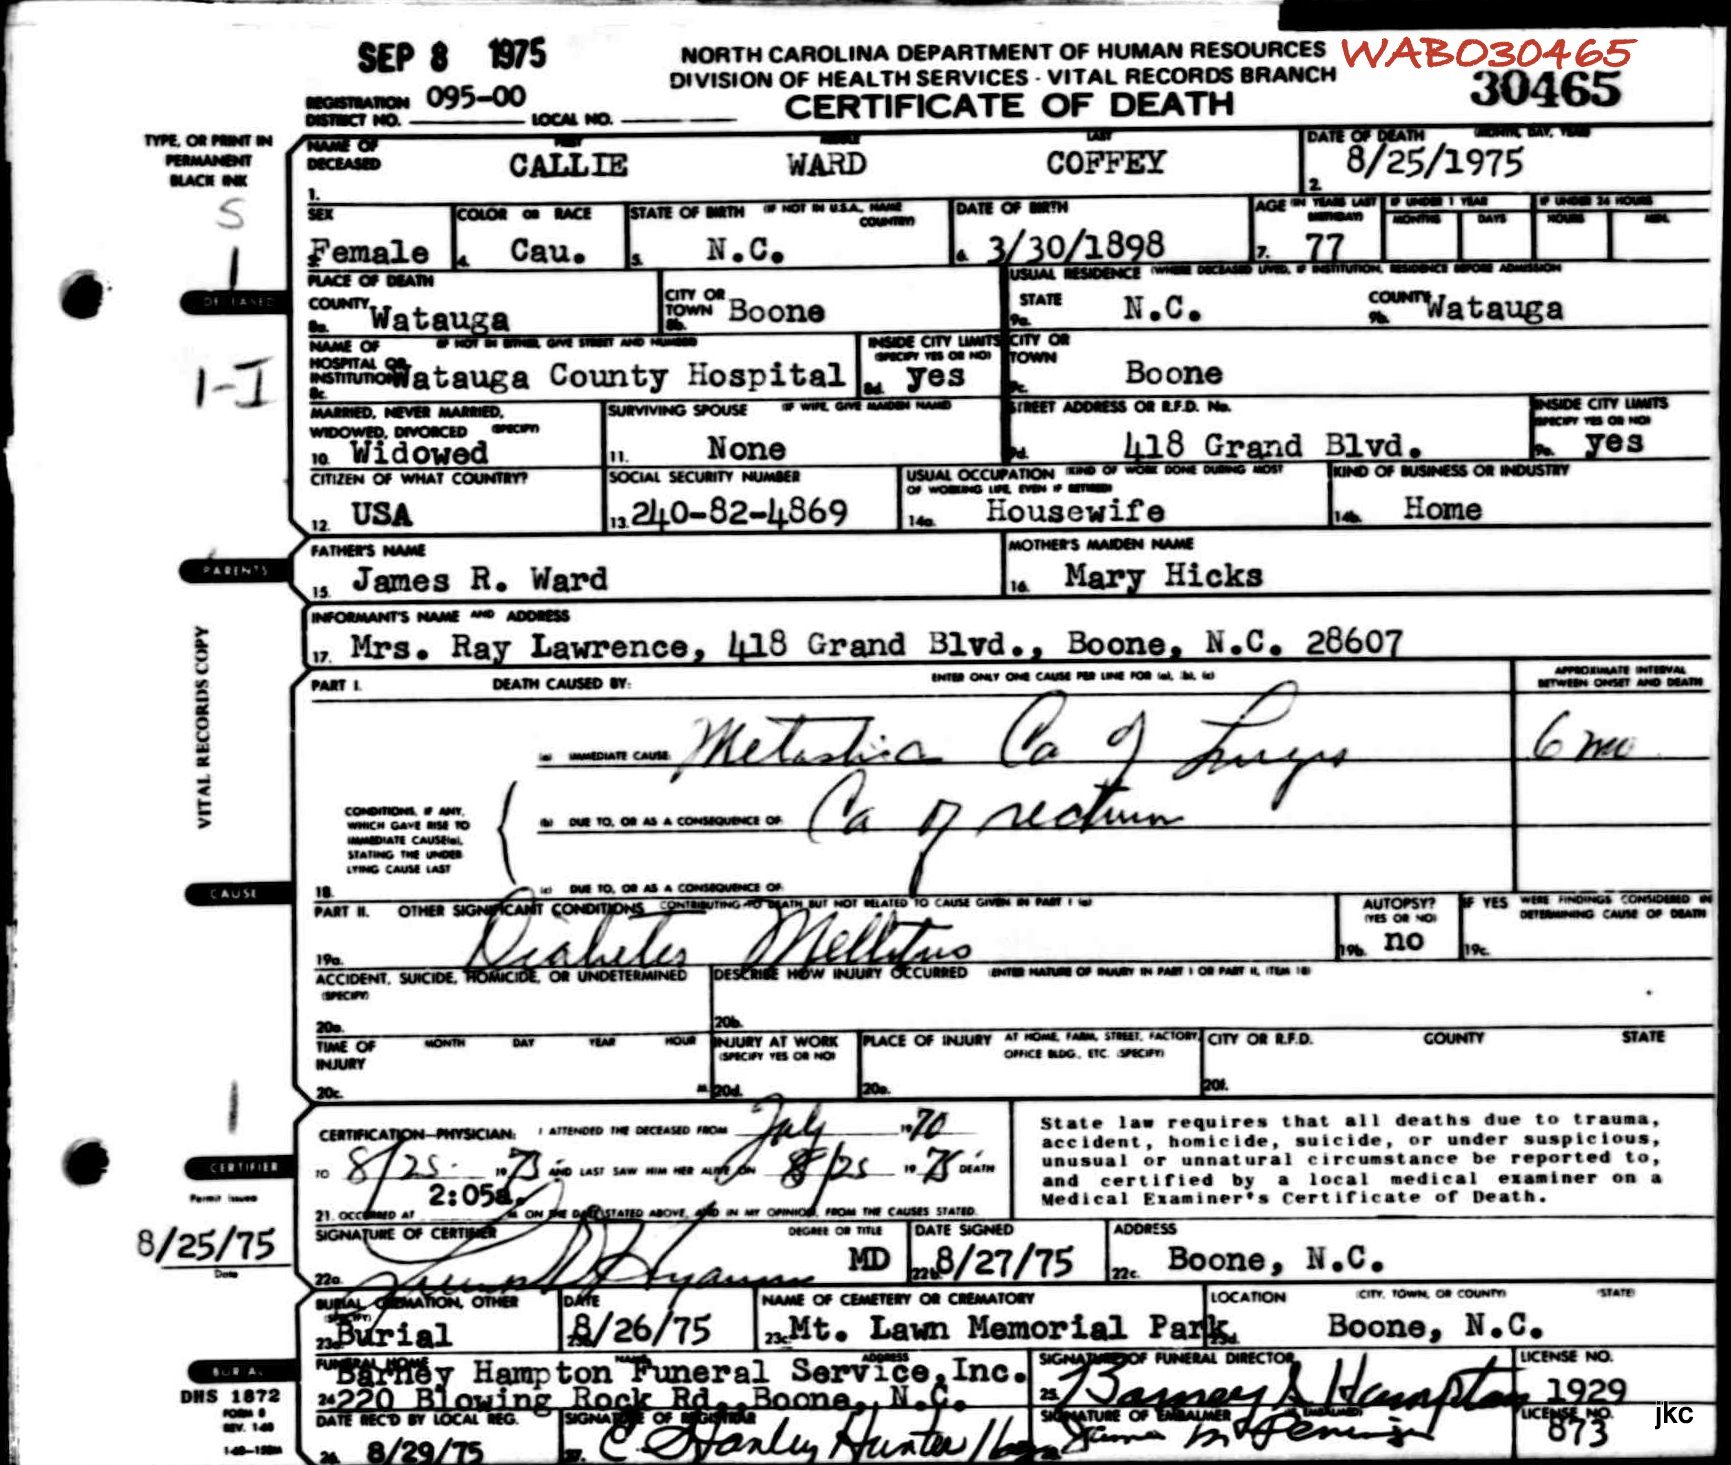 SEP 8 1975
NORTH CAROLINA DEPARTMENT OF HUMAN RESOURCES WABO30465
DIVISION OF HEALTH SERVICES - VITAL RECORDS BRANCH 30465
REGISTRATION DISTRICT NO. 095-00 LOCAL NO. CERTIFICATE OF DEATH
TYPE, OR PRINT IN
PERMANENT
BLACK INK
S
1
DECEASED
1-I
NAME OF DECEASED FIRST MIDDLE LAST DATE OF DEATH (MONTH, DAY, YEAR)
1. CALLIE WARD COFFEY 2. 8/25/1975
SEX COLOR OR RACE STATE OF BIRTH (IF NOT IN U.S.A., NAME COUNTRY) DATE OF BIRTH AGE (IN YEARS LAST BIRTHDAY) IF UNDER 1 YEAR MONTHS DAYS IF UNDER 24 HOURS HOURS MIN.
3. Female 4. Cau. 5. N.C. 6. 3/30/1898 7. 77
PLACE OF DEATH USUAL RESIDENCE (WHERE DECEASED LIVED, IF INSTITUTION, RESIDENCE BEFORE ADMISSION
COUNTY 8a. Watauga CITY OR TOWN 8b. Boone STATE 9a. N.C. COUNTY 9b. Watauga
NAME OF HOSPITAL OR INSTITUTION (IF NOT IN EITHER, GIVE STREET AND NUMBER) INSIDE CITY LIMITS (SPECIFY YES OR NO) CITY OR TOWN
8c. Watauga County Hospital 8d. yes 9c. Boone
MARRIED, NEVER MARRIED, WIDOWED, DIVORCED (SPECIFY) SURVIVING SPOUSE (IF WIFE, GIVE MAIDEN NAME) STREET ADDRESS OR R.F.D. No. INSIDE CITY LIMITS (SPECIFY YES OR NO)
10. Widowed 11. None 9d. 418 Grand Blvd. 9e. yes
CITIZEN OF WHAT COUNTRY? SOCIAL SECURITY NUMBER USUAL OCCUPATION (KIND OF WORK DONE DURING MOST OF WORKING LIFE, EVEN IF RETIRED) KIND OF BUSINESS OR INDUSTRY
12. USA 13. 240-82-4869 14a. Housewife 14b. Home
PARENTS
FATHER'S NAME MOTHER'S MAIDEN NAME
15. James R. Ward 16. Mary Hicks
INFORMANT'S NAME AND ADDRESS
17. Mrs. Ray Lawrence, 418 Grand Blvd., Boone, N.C. 28607
VITAL RECORDS COPY
PART I. DEATH CAUSED BY: ENTER ONLY ONE CAUSE PER LINE FOR (a), (b), (c) APPROXIMATE INTERVAL BETWEEN ONSET AND DEATH
(a) IMMEDIATE CAUSE Metastic Ca of Lungs 6 mo
CONDITIONS, IF ANY,
WHICH GAVE RISE TO
IMMEDIATE CAUSE(a),
STATING THE UNDER
LYING CAUSE LAST
(b) DUE TO, OR AS A CONSEQUENCE OF: Ca of rectum
CAUSE
18. (c) DUE TO, OR AS A CONSEQUENCE OF:
PART II. OTHER SIGNIFICANT CONDITIONS CONTRIBUTING TO DEATH BUT NOT RELATED TO CAUSE GIVEN IN PART I (a) AUTOPSY? (YES OR NO) IF YES WERE FINDINGS CONSIDERED IN DETERMINING CAUSE OF DEATH
19a. Diabetes Mellitus 19b. no 19c.
ACCIDENT, SUICIDE, HOMICIDE, OR UNDETERMINED (SPECIFY) DESCRIBE HOW INJURY OCCURRED (ENTER NATURE OF INJURY IN PART I OR PART II, ITEM 18)
20a. 20b.
TIME OF INJURY MONTH DAY YEAR HOUR INJURY AT WORK (SPECIFY YES OR NO) PLACE OF INJURY AT HOME, FARM, STREET, FACTORY, OFFICE BLDG., ETC. (SPECIFY) CITY OR R.F.D. COUNTY STATE
20c. M. 20d. 20e. 20f.
1
CERTIFIER
CERTIFICATION—PHYSICIAN: I ATTENDED THE DECEASED FROM July 1970
TO 8/25 1975 AND LAST SAW HIM HER ALIVE ON 8/25 1975 DEATH
21. OCCURRED AT 2:05a. M. ON THE DATE STATED ABOVE, AND IN MY OPINION, FROM THE CAUSES STATED.
State law requires that all deaths due to trauma,
accident, homicide, suicide, or under suspicious,
unusual or unnatural circumstance be reported to,
and certified by a local medical examiner on a
Medical Examiner's Certificate of Death.
Permit Issued
8/25/75
Date
SIGNATURE OF CERTIFIER DEGREE OR TITLE DATE SIGNED ADDRESS
22a. MD 22b. 8/27/75 22c. Boone, N.C.
BURIAL, CREMATION, OTHER (SPECIFY) DATE NAME OF CEMETERY OR CREMATORY LOCATION (CITY, TOWN, OR COUNTY) (STATE)
23a. Burial 23b. 8/26/75 23c. Mt. Lawn Memorial Park 23d. Boone, N.C.
BURIAL
FUNERAL HOME NAME ADDRESS SIGNATURE OF FUNERAL DIRECTOR LICENSE NO.
Barney Hampton Funeral Service, Inc.
24. 220 Blowing Rock Rd., Boone, N.C. 25. Barney Hampton 1929
DHS 1872
FORM 8
REV. 1-68
DATE REC'D BY LOCAL REG. SIGNATURE OF REGISTRAR SIGNATURE OF EMBALMER (IF EMBALMED) LICENSE NO.
26. 8/29/75 27. C Stanley Hunter 873
jkc